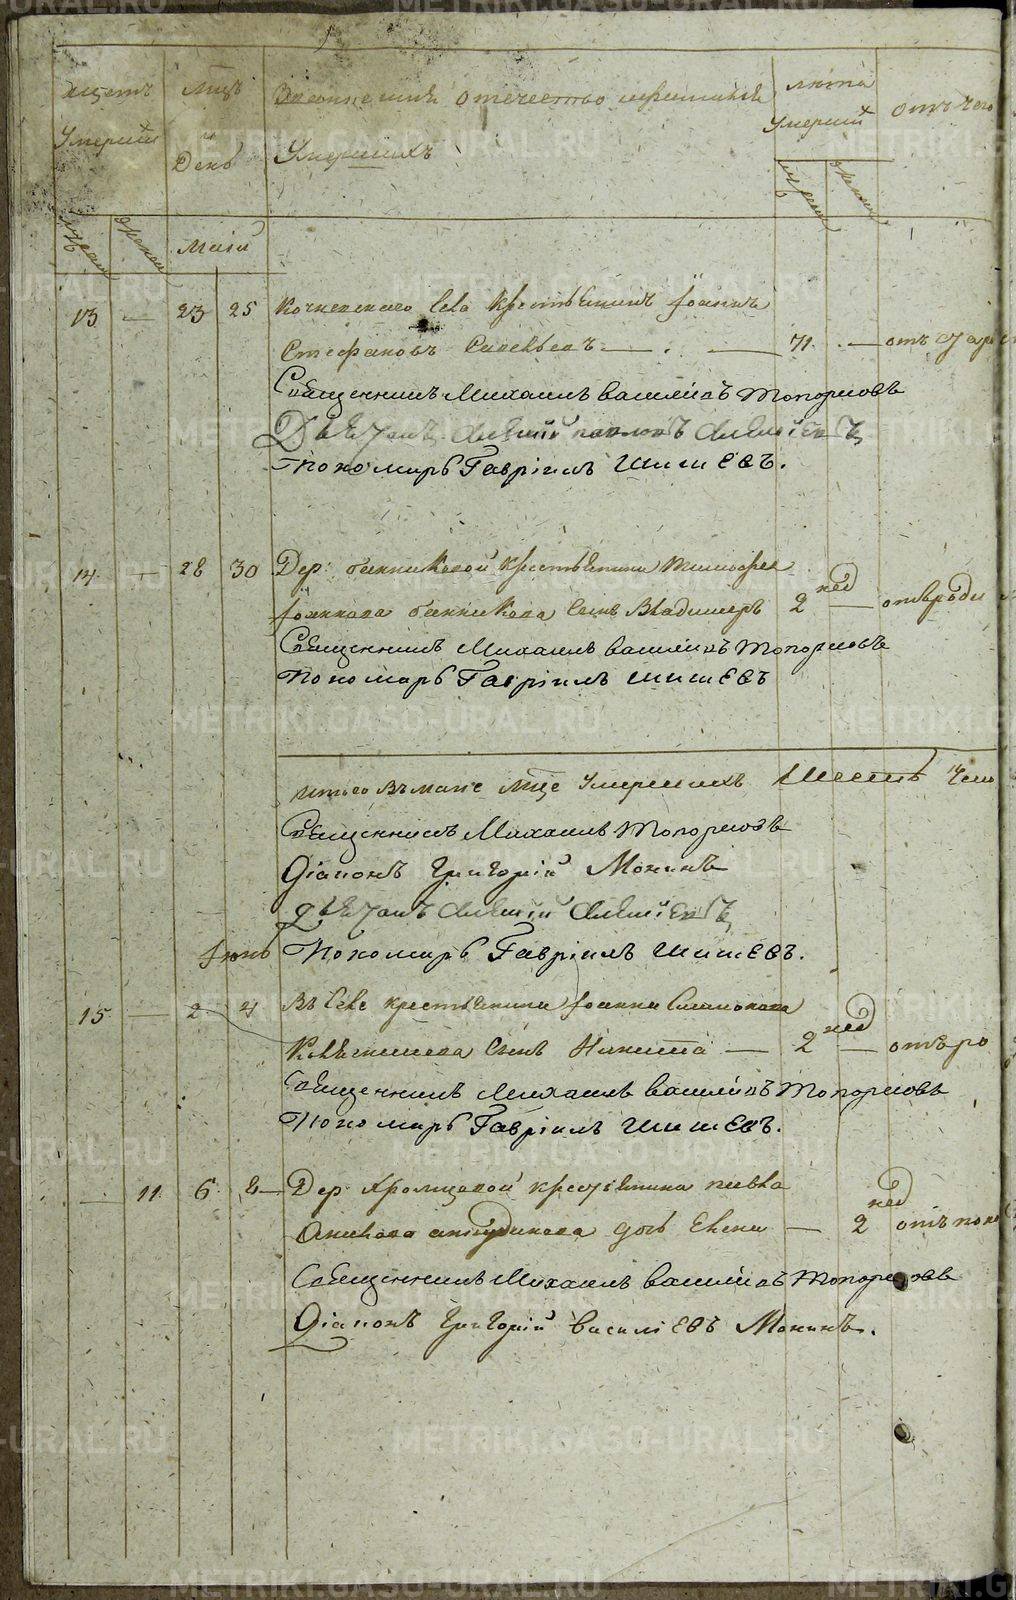 щетъ умершихъ
мцъ День
Званіе имя отечество прозваніе умершихъ
лѣта умершихъ
отъ чего
муж жен
Маія
13 — 23 25 Кочневскаго Села Крестьянинъ Іоаннъ
Стефановъ Савельевъ — 71 — отъ
Священникъ Михаилъ Василіевъ Топорковъ
Дьячекъ Алексій Павловъ Алексіевъ
Пономарь Гавріилъ Шишевъ.
14 — 28 30 Дер: банниковой Крестьянина Тимофея
Іоаннова банникова Сынъ Владимеръ 2 нед — отъ
Священникъ Михаилъ Василіевъ Топорковъ
Пономарь Гавріилъ Шишевъ
итого въ маіе мце умершихъ Шесть чело
Священникъ Михаилъ Топорковъ
Діаконъ Григорій Мокинъ
Дьячекъ Алексій Алексіевъ
Пономарь Гавріилъ Шишевъ.
Іюнь
15 — 2 4 Въ Селе крестьянина Іоанна Симонова
Сынъ Никита — 2 нед — отъ ро
Священникъ Михаилъ Василіевъ Топорковъ
Пономарь Гавріилъ Шишевъ.
— 11 6 8 Дер Хромцовой крестьянина Павла
дочь Елена — 2 нед отъ
Священникъ Михаилъ Василіевъ Топорковъ
Діаконъ Григорій Василіевъ Мокинъ.
METRIKI.GASO-URAL.RU